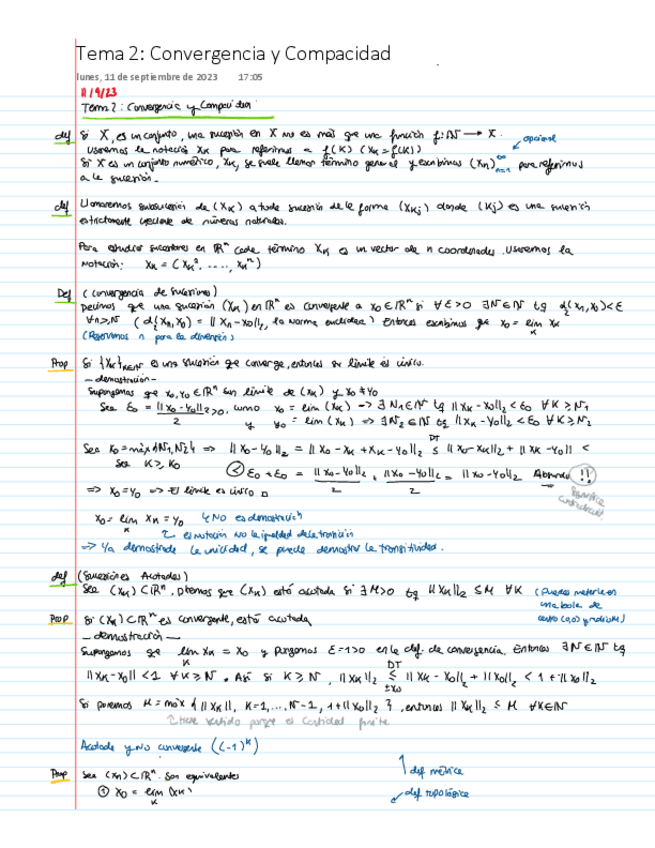 Tema 2: Convergencia y Compacidad
lunes, 11 de septiembre de 2023 17:05
11/9/23
Tema 2: Convergencia y Compacidad
def Si X, es un conjunto, una sucesión en X no es más que una función f: ℕ → X.
usaremos la notación xₖ para referirnos a f(k) (xₖ = f(k)) opcional
Si X es un conjunto numérico, xₖ, se suele llamar término general y escribimos (xₙ)ₙ₌₁^∞ para referirnos
a la sucesión.
def Llamaremos subsucesión de (xₖ) a toda sucesión de la forma (xₖⱼ) donde (kⱼ) es una sucesión
estrictamente creciente de números naturales.
Para estudiar sucesiones en ℝⁿ cada término xₖ es un vector de n coordenadas. Usaremos la
notación: xₖ = (xₖ¹, ...., xₖⁿ)
Def (convergencia de sucesiones)
Decimos que una sucesión (xₖ) en ℝⁿ es convergente a x₀ ∈ ℝⁿ si ∀ε>0 ∃N∈ℕ tq d₂(xₙ, x₀) < ε
∀n≥N (d₂(xₙ, x₀) = ||xₙ - x₀||₂, la norma euclídea) Entonces escribimos que x₀ = lim xₖ
k
(Reservamos n para la dimensión)
Prop Si {xₖ}ₖ∈ℕ es una sucesión que converge, entonces su límite es único.
—demostración—
Supongamos que x₀, y₀ ∈ ℝⁿ son límite de (xₖ) y x₀ ≠ y₀
Sea ε₀ = ||x₀ - y₀||₂ / 2 > 0, como x₀ = lim (xₖ) → ∃N₁∈ℕ tq ||xₖ - x₀||₂ < ε₀ ∀k≥N₁
y y₀ = lim (xₖ) ⇒ ∃N₂∈ℕ tq ||xₖ - y₀||₂ < ε₀ ∀k≥N₂
Sea k₀ = máx{N₁, N₂} ⇒ ||x₀ - y₀||₂ = ||x₀ - xₖ + xₖ - y₀||₂ ≤ ||x₀ - xₖ||₂ + ||xₖ - y₀|| <
DT
Sea k ≥ k₀ < ε₀ + ε₀ = ||x₀ - y₀||₂ / 2 + ||x₀ - y₀||₂ / 2 = ||x₀ - y₀||₂ Absurdo !!
⇒ x₀ = y₀ ⇒ El límite es único □
x₀ = lim xₖ = y₀ No es demostración
k es notación no la igualdad de la transición
⇒ Ya demostrada la unicidad, se puede demostrar la transitividad.
def (Sucesiones Acotadas)
Sea (xₖ) ⊂ ℝⁿ, diremos que (xₖ) está acotada si ∃M>0 tq ||xₖ||₂ ≤ M ∀k (Puedes meterla en
una bola de
centro (0,0) y radio M)
Prop Si (xₖ) ⊂ ℝⁿ es convergente, está acotada
—demostración—
Supongamos que lim xₖ = x₀ y pongamos ε=1>0 en la def. de convergencia. Entonces ∃N∈ℕ tq
k DT
||xₖ - x₀|| < 1 ∀k≥N. Así si k≥N, ||xₖ||₂ ≤ ||xₖ - x₀||₂ + ||x₀||₂ < 1 + ||x₀||₂
±x₀
Si ponemos M = máx{||xₖ||, k=1,..., N-1, 1+||x₀||₂}, entonces ||xₖ||₂ ≤ M ∀k∈ℕ
tiene sentido porque es cantidad finita
Acotada y no convergente ((-1)ᵏ)
Prop Sea (xₙ) ⊂ ℝⁿ. Son equivalentes
def métrica
① x₀ = lim (xₖ)
k
def topológica